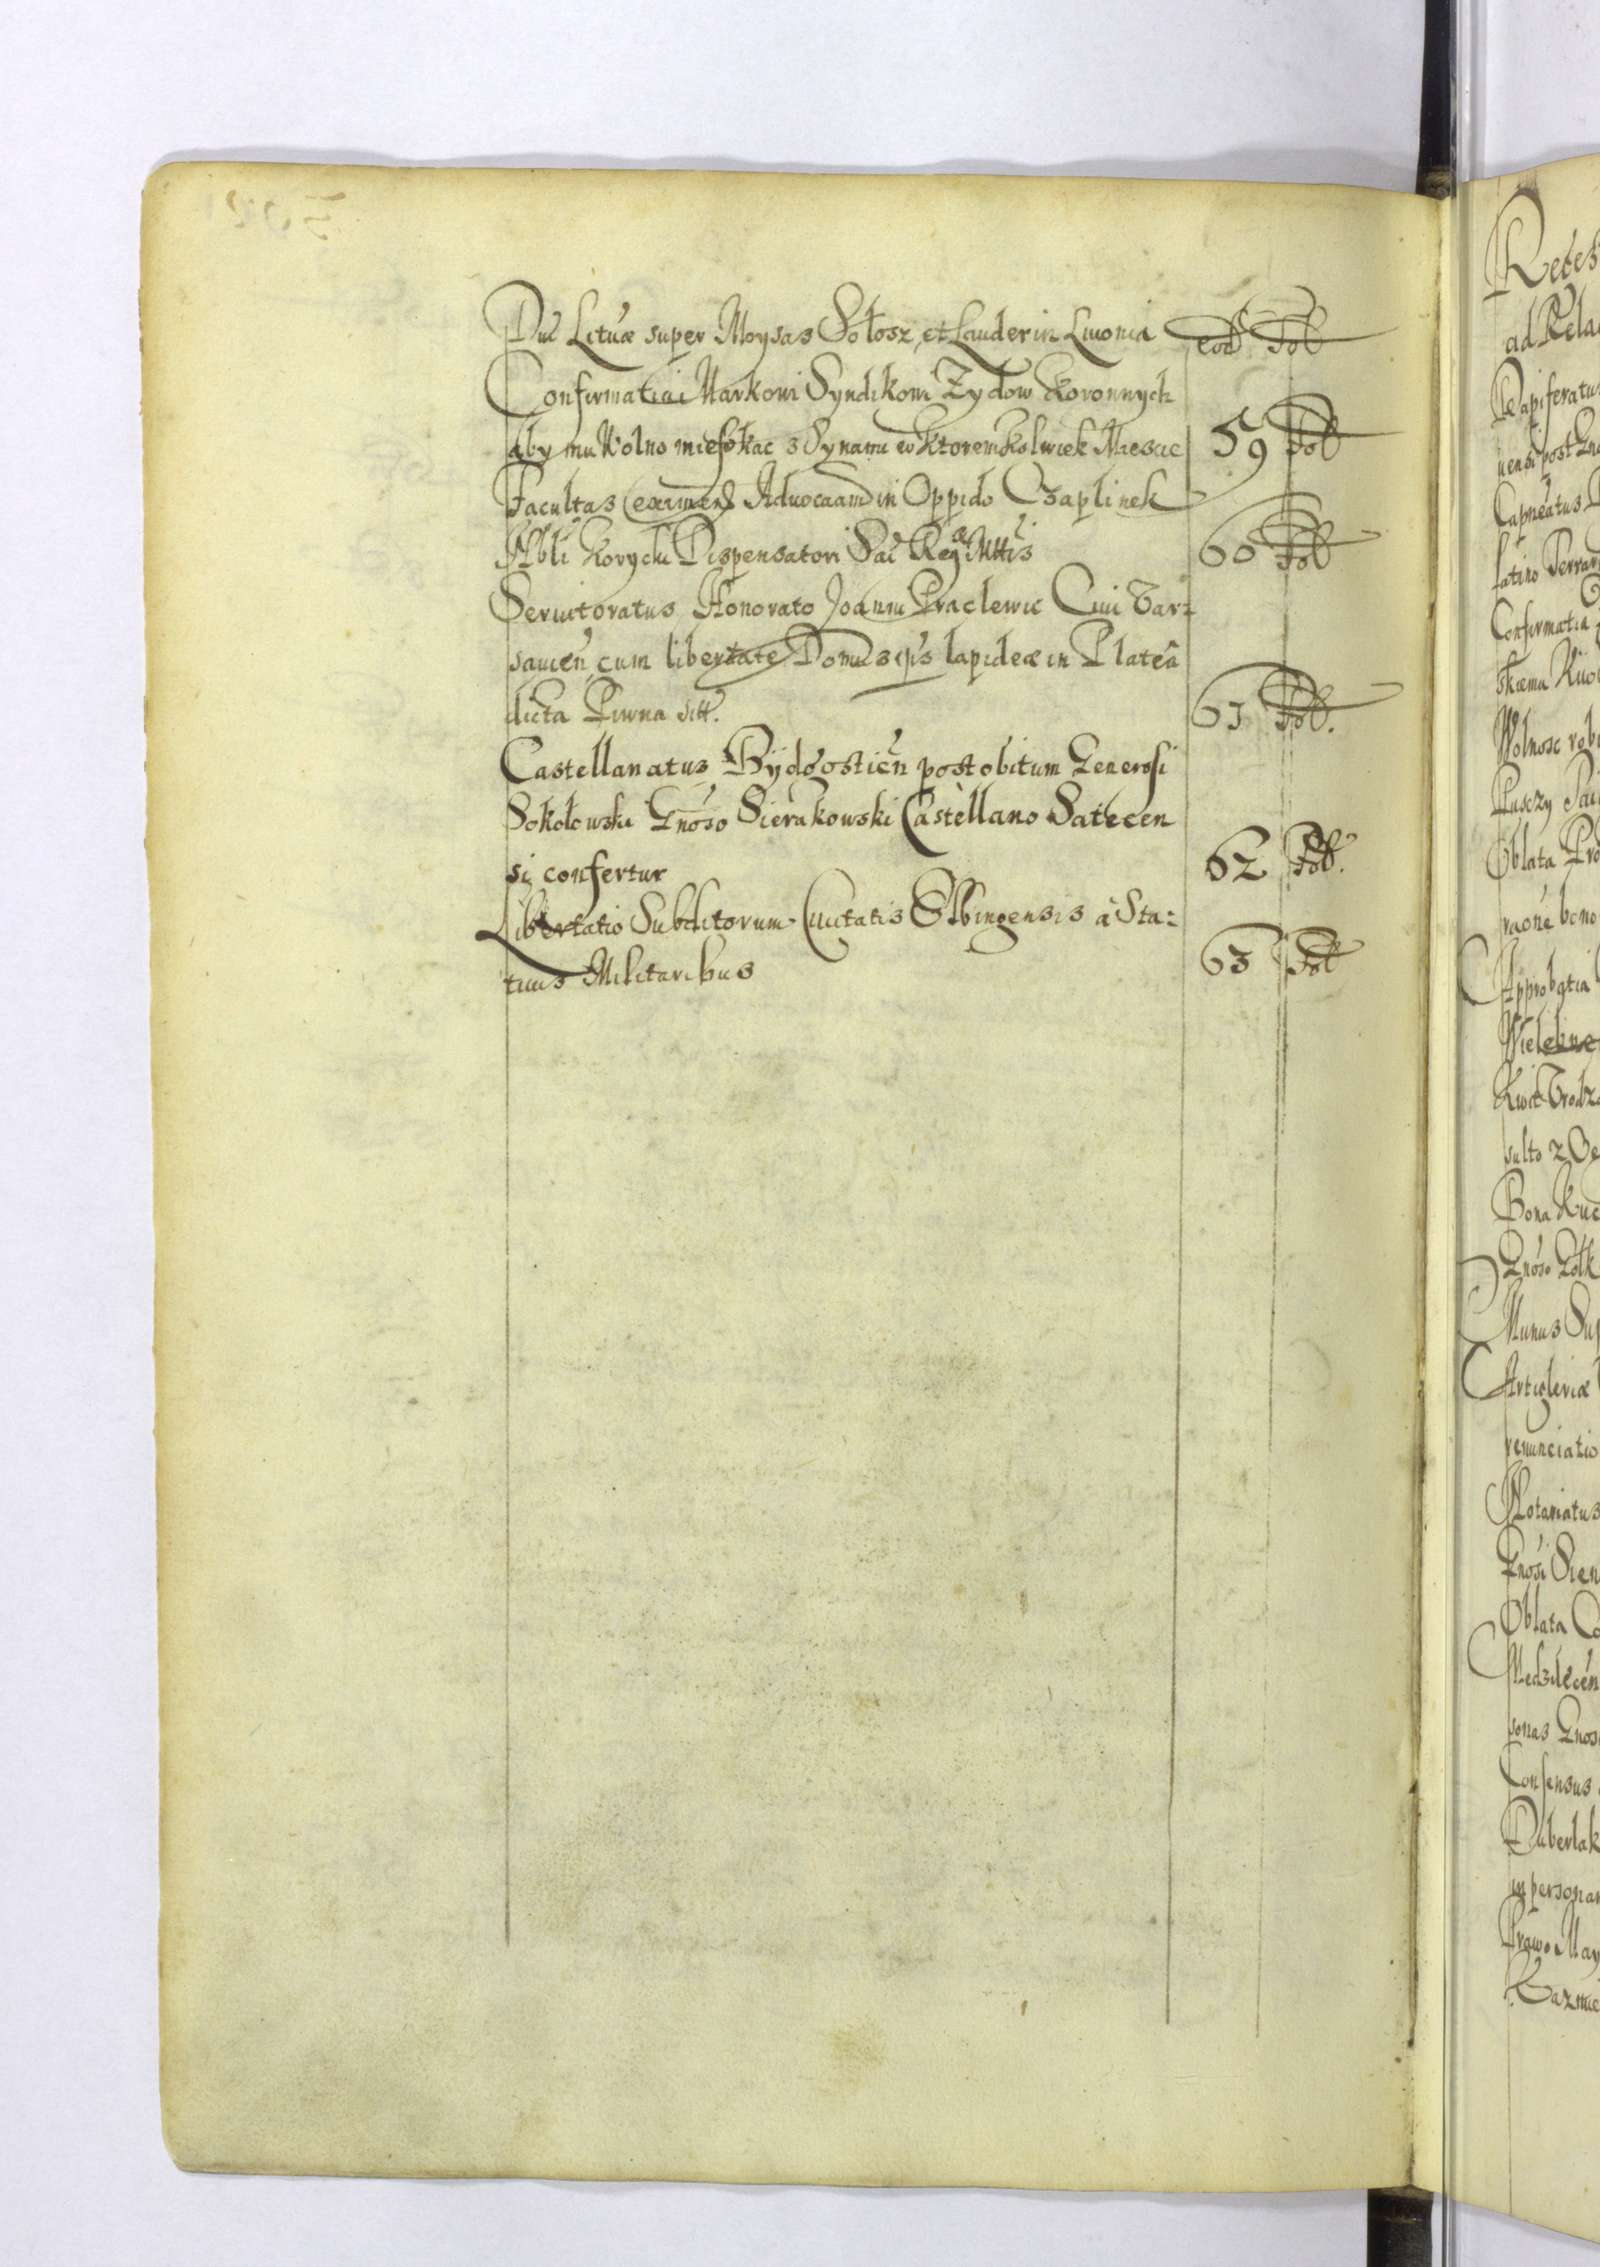 Duc Lituae super Moysas Sołosz, et Lauder in Livonia eod Fol
Confirmatiai Markowi Syndikowi Zydow Koronnych
aby mu Wolno mieszkac z Synami w Ktoremkolwiek Miescie 59 Fol
Facultas eximendi Advocatiam in Oppido Czaplinek
Nbli Korycki Dispensatori Sac Rega Mttis 60 Fol
Servitoratus Honorato Joanni Praclewic Civi Var=
savien cum libertate Domus eius lapideae in Plateâ
dicta Piwna sitt. 61 Fol.
Castellanatus Bÿdgostien post obitum Generosi
Sokołowski Gnoso Sierakowski Castellano Satecen
si confertur 62 Fol.
Libertatio Subditorum Civitatis Elbingensis â Sta=
tivis Militaribus 63 Fol
Reces
ad Rela
Dapiferatus
nensi post Gn
Capneatus
latino Terrar
Confirmatia
skiemu
Wolnosc robi
Pusczy
Oblata Pro
raone bono
Approbatia
Wielebne
Kwit
sulto z
Bona
Gnoso
Munus Sup
Artigleriae
renunciatio
Notariatus
Gnosi Sien
Oblata Co
sonas Gnos
Consensus
Duberlak
in personam
Prawo May
Kazmie